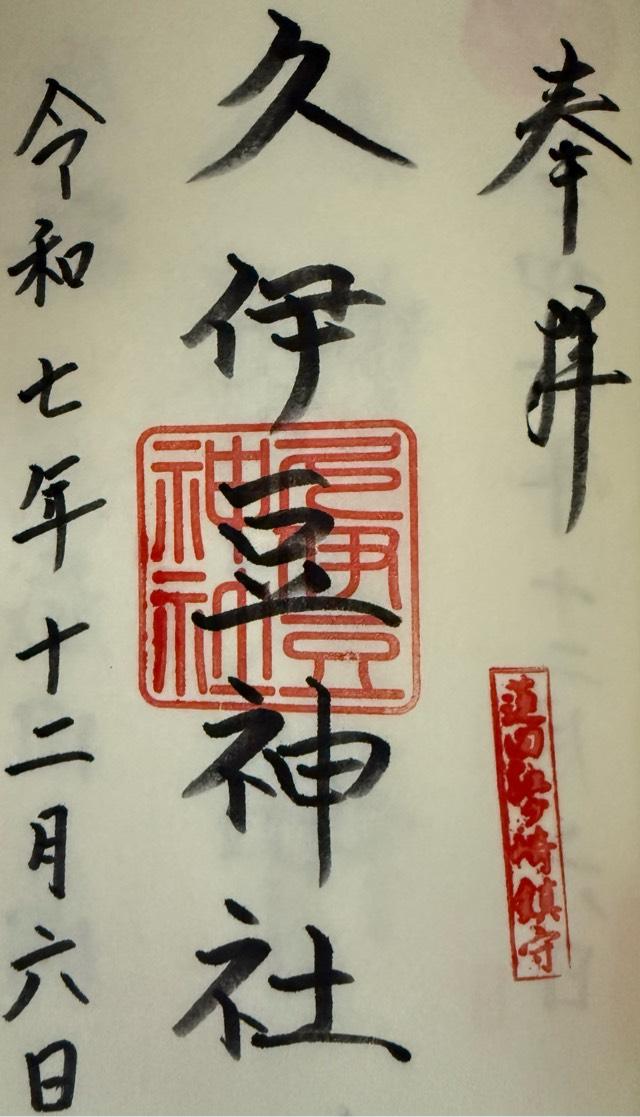 奉拝
蓮田江ケ崎鎮守
久伊豆神社
久伊豆神社
令和七年十二月六日